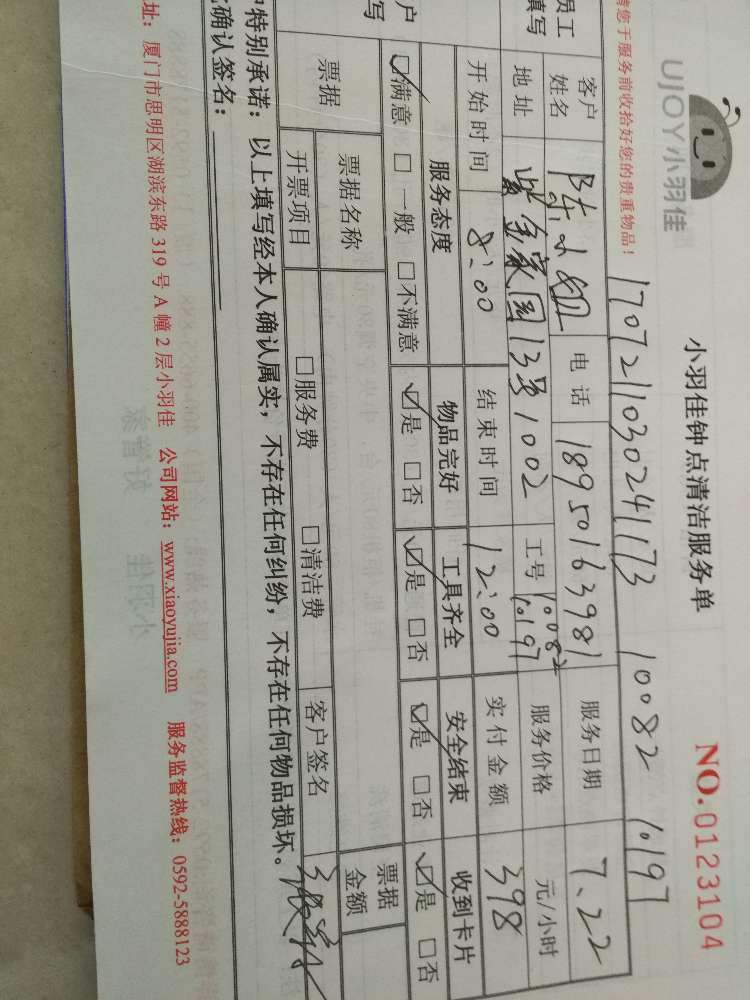 UJOY小羽佳
小羽佳钟点清洁服务单
NO.0123104
请您于服务前收拾好您的贵重物品!
1707211030241173 10082 10197
员工填写
客户姓名 陈小姐 电话 18950163981 服务日期 7.22
地址 紫金家园13号1002 工号 10082 10197 服务价格 元/小时
开始时间 8:00 结束时间 12:00 实付金额 398
户写
服务态度 物品完好 工具齐全 安全结束 收到卡片
☑满意 □一般 □不满意 ☑是 □否 ☑是 □否 ☑是 □否 ☑是 □否
票据 票据名称 票据金额
开票项目 □服务费 □清洁费 客户签名
特别承诺: 以上填写经本人确认属实, 不存在任何纠纷, 不存在任何物品损坏。
确认签名:
址: 厦门市思明区湖滨东路 319 号 A 幢 2 层小羽佳 公司网站: www.xiaoyujia.com 服务监督热线: 0592-5888123